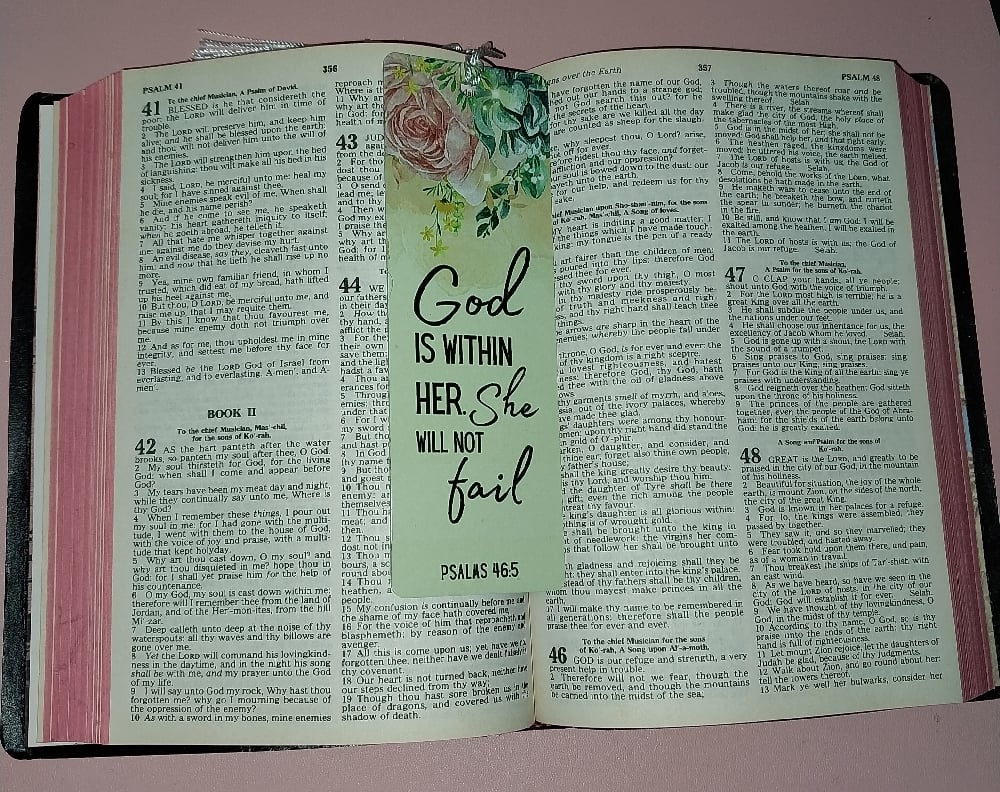 PSALM 41
356
41 To the chief Musician, A Psalm of David.
BLESSED is he that considereth the
poor: the LORD will deliver him in time of
trouble.
2 The LORD will preserve him, and keep him
alive; and he shall be blessed upon the earth:
and thou wilt not deliver him unto the will of
his enemies.
3 The LORD will strengthen him upon the bed
of languishing: thou wilt make all his bed in his
sickness.
4 I said, LORD, be merciful unto me: heal my
soul; for I have sinned against thee.
5 Mine enemies speak evil of me, When shall
he die, and his name perish?
6 And if he come to see me, he speaketh
vanity: his heart gathereth iniquity to itself;
when he goeth abroad, he telleth it.
7 All that hate me whisper together against
me: against me do they devise my hurt.
8 An evil disease, say they, cleaveth fast unto
him: and now that he lieth he shall rise up no
more.
9 Yea, mine own familiar friend, in whom I
trusted, which did eat of my bread, hath lifted
up his heel against me.
10 But thou, O LORD, be merciful unto me, and
raise me up, that I may requite them.
11 By this I know that thou favourest me,
because mine enemy doth not triumph over
me.
12 And as for me, thou upholdest me in mine
integrity, and settest me before thy face for
ever.
13 Blessed be the LORD God of Israel from
everlasting, and to everlasting. A·men', and A·
men'.
BOOK II
To the chief Musician, Mas´·chil,
for the sons of Ko´·rah.
42 AS the hart panteth after the water
brooks, so panteth my soul after thee, O God.
2 My soul thirsteth for God, for the living
God: when shall I come and appear before
God?
3 My tears have been my meat day and night,
while they continually say unto me, Where is
thy God?
4 When I remember these things, I pour out
my soul in me: for I had gone with the multi-
tude, I went with them to the house of God,
with the voice of joy and praise, with a multi-
tude that kept holyday.
5 Why art thou cast down, O my soul? and
why art thou disquieted in me? hope thou in
God: for I shall yet praise him for the help of
his countenance.
6 O my God, my soul is cast down within me:
therefore will I remember thee from the land of
Jordan, and of the Her´·mon·ites, from the hill
Mi´·zar.
7 Deep calleth unto deep at the noise of thy
waterspouts: all thy waves and thy billows are
gone over me.
8 Yet the LORD will command his lovingkind-
ness in the daytime, and in the night his song
shall be with me, and my prayer unto the God
of my life.
9 I will say unto God my rock, Why hast thou
forgotten me? why go I mourning because of
the oppression of the enemy?
10 As with a sword in my bones, mine enemies
reproach m
Where is th
11 Why ar
why art tho
in God: for
health of m
43 JUD
against
from the d
2 For tho
dost thou
because of
3 O send o
lead me;
and to thy
4 Then w
God my ex
I praise the
5 Why ar
why art th
God: for I
health of m
44 WE
our fathers
in their day
2 How th
thy hand,
afflict the
3 For the
their own
save them:
and the lig
hadst a fav
4 Thou a
erances for
5 Through
emies: thr
under that
6 For I w
my sword
7 But tho
and hast p
8 In God
thy name f
9 But tho
and goest
10 Thou m
enemy: and
themselves
11 Thou h
meat; and
then.
12 Thou
dost not in
13 Thou m
bours, a sc
round abou
14 Thou
heathen, a
people.
15 My confusion is continually before me, and
the shame of my face hath covered me,
16 For the voice of him that reproacheth and
blasphemeth; by reason of the enemy and
avenger.
17 All this is come upon us; yet have we not
forgotten thee, neither have we dealt falsely in
thy covenant.
18 Our heart is not turned back, neither have
our steps declined from thy way;
19 Though thou hast sore broken us in the
place of dragons, and covered us with the
shadow of death.
God
IS WITHIN
HER. She
WILL NOT
fail
PSALAS 46:5
over the Earth
357
PSALM 48
have forgotten the name of our God,
ed out our hands to a strange god;
not God search this out? for he
the secrets of the heart.
thy sake are we killed all the day
are counted as sheep for the slaugh-
why sleepest thou, O Lord? arise,
off for ever.
hidest thou thy face, and forget-
affliction and our oppression?
soul is bowed down to the dust: our
unto the earth.
for our help, and redeem us for thy
sake.
chief Musician upon Sho·shan´·nim, for the sons
of Ko´·rah, Mas´·chil, A Song of loves.
heart is inditing a good matter: I
the things which I have made touch-
king: my tongue is the pen of a ready
art fairer than the children of men:
poured into thy lips: therefore God
blessed thee for ever.
thy sword upon thy thigh, O most
with thy glory and thy majesty.
thy majesty ride prosperously be-
of truth and meekness and right-
and thy right hand shall teach thee
things.
arrows are sharp in the heart of the
enemies; whereby the people fall under
throne, O God, is for ever and ever: the
of thy kingdom is a right sceptre.
lovest righteousness, and hatest
ness: therefore God, thy God, hath
thee with the oil of gladness above
thy garments smell of myrrh, and a´·oes,
out of the ivory palaces, whereby
made thee glad.
daughters were among thy honour-
women: upon thy right hand did stand the
in gold of O´·phir.
O daughter, and consider, and
thine ear; forget also thine own people,
father's house;
shall the king greatly desire thy beauty:
is thy Lord; and worship thou him.
the daughter of Tyre shall be there
gift; even the rich among the people
entreat thy favour.
king's daughter is all glorious within:
clothing is of wrought gold.
shall be brought unto the king in
of needlework: the virgins her com-
that follow her shall be brought unto
gladness and rejoicing shall they be
they shall enter into the king's palace.
stead of thy fathers shall be thy children,
whom thou mayest make princes in all the
earth.
17 I will make thy name to be remembered in
all generations: therefore shall the people
praise thee for ever and ever.
To the chief Musician for the sons
of Ko´·rah, A Song upon Al´·a·moth.
46 GOD is our refuge and strength, a very
present help in trouble.
2 Therefore will not we fear, though the
earth be removed, and though the mountains
be carried into the midst of the sea;
3 Though the waters thereof roar and be
troubled, though the mountains shake with the
swelling thereof. Selah.
4 There is a river, the streams whereof shall
make glad the city of God, the holy place of
the tabernacles of the most High.
5 God is in the midst of her; she shall not be
moved: God shall help her, and that right early.
6 The heathen raged, the kingdoms were
moved: he uttered his voice, the earth melted.
7 The LORD of hosts is with us; the God of
Jacob is our refuge. Selah.
8 Come, behold the works of the LORD, what
desolations he hath made in the earth.
9 He maketh wars to cease unto the end of
the earth; he breaketh the bow, and cutteth
the spear in sunder; he burneth the chariot
in the fire.
10 Be still, and know that I am God: I will be
exalted among the heathen, I will be exalted in
the earth.
11 The LORD of hosts is with us; the God of
Jacob is our refuge. Selah.
To the chief Musician,
A Psalm for the sons of Ko´·rah.
47 O CLAP your hands, all ye people;
shout unto God with the voice of triumph.
2 For the LORD most high is terrible; he is a
great King over all the earth.
3 He shall subdue the people under us, and
the nations under our feet.
4 He shall choose our inheritance for us, the
excellency of Jacob whom he loved. Selah.
5 God is gone up with a shout, the LORD with
the sound of a trumpet.
6 Sing praises to God, sing praises: sing
praises unto our King, sing praises.
7 For God is the King of all the earth: sing ye
praises with understanding.
8 God reigneth over the heathen: God sitteth
upon the throne of his holiness.
9 The princes of the people are gathered
together, even the people of the God of Abra-
ham: for the shields of the earth belong unto
God: he is greatly exalted.
A Song and Psalm for the sons of
Ko´·rah.
48 GREAT is the LORD, and greatly to be
praised in the city of our God, in the mountain
of his holiness.
2 Beautiful for situation, the joy of the whole
earth, is mount Zion, on the sides of the north,
the city of the great King.
3 God is known in her palaces for a refuge.
4 For, lo, the kings were assembled, they
passed by together.
5 They saw it, and so they marvelled; they
were troubled, and hasted away.
6 Fear took hold upon them there, and pain,
as of a woman in travail.
7 Thou breakest the ships of Tar´·shish with
an east wind.
8 As we have heard, so have we seen in the
city of the LORD of hosts, in the city of our
God: God will establish it for ever. Selah.
9 We have thought of thy lovingkindness, O
God, in the midst of thy temple.
10 According to thy name, O God, so is thy
praise unto the ends of the earth: thy right
hand is full of righteousness.
11 Let mount Zion rejoice, let the daughters of
Judah be glad, because of thy judgments.
12 Walk about Zion, and go round about her:
tell the towers thereof.
13 Mark ye well her bulwarks, consider her